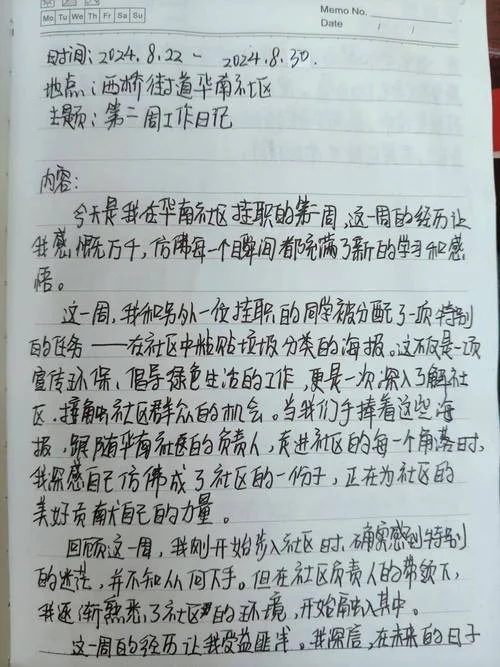 Mo Tu We Th Fr Sa Su
Memo No.
Date / /
时间：2024.8.22 - 2024.8.30.
地点：西桥街道华南社区
主题：第二周工作日记
内容：
今天是我在华南社区挂职的第二周，这一周的经历让
我感慨万千，仿佛每一个瞬间都充满了新的学习和感
悟。
这一周，我和另外一位挂职的同学被分配了一项特别
的任务——在社区中粘贴垃圾分类的海报。这不仅是一项
宣传环保、倡导绿色生活的工作，更是一次深入了解社
区、接触社区群众的机会。当我们手捧着这些海
报，跟随华南社区的负责人，走进社区的每一个角落时，
我深感自己仿佛成了社区的一份子，正在为社区的
美好贡献自己的力量。
回顾这一周，我刚开始步入社区时，确实感到特别
的迷茫，并不知从何下手。但在社区负责人的带领下，
我逐渐熟悉了社区的环境，开始融入其中。
这一周的经历让我受益匪浅。我深信，在未来的日子